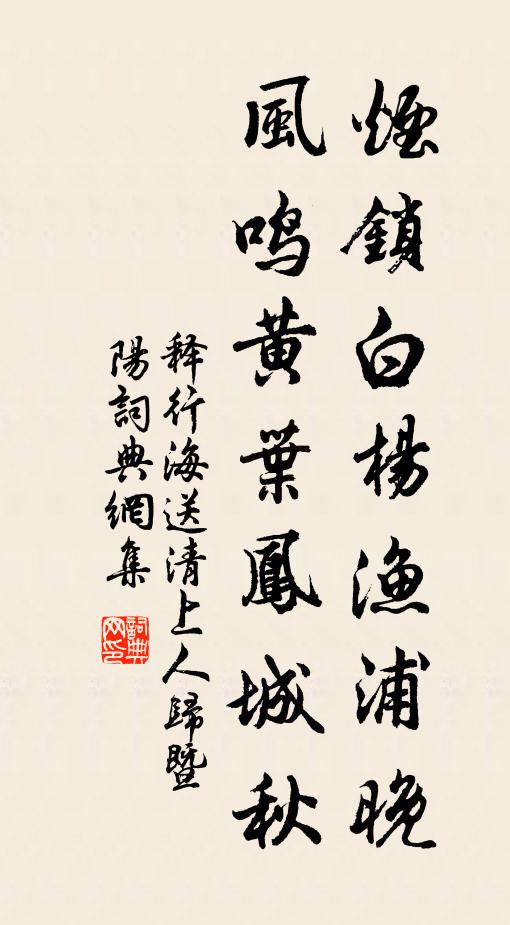 煙鎖白楊漁浦晚
風鳴黄葉鳳城秋
释行海送清上人歸暨
陽詞典網集
詞典网印